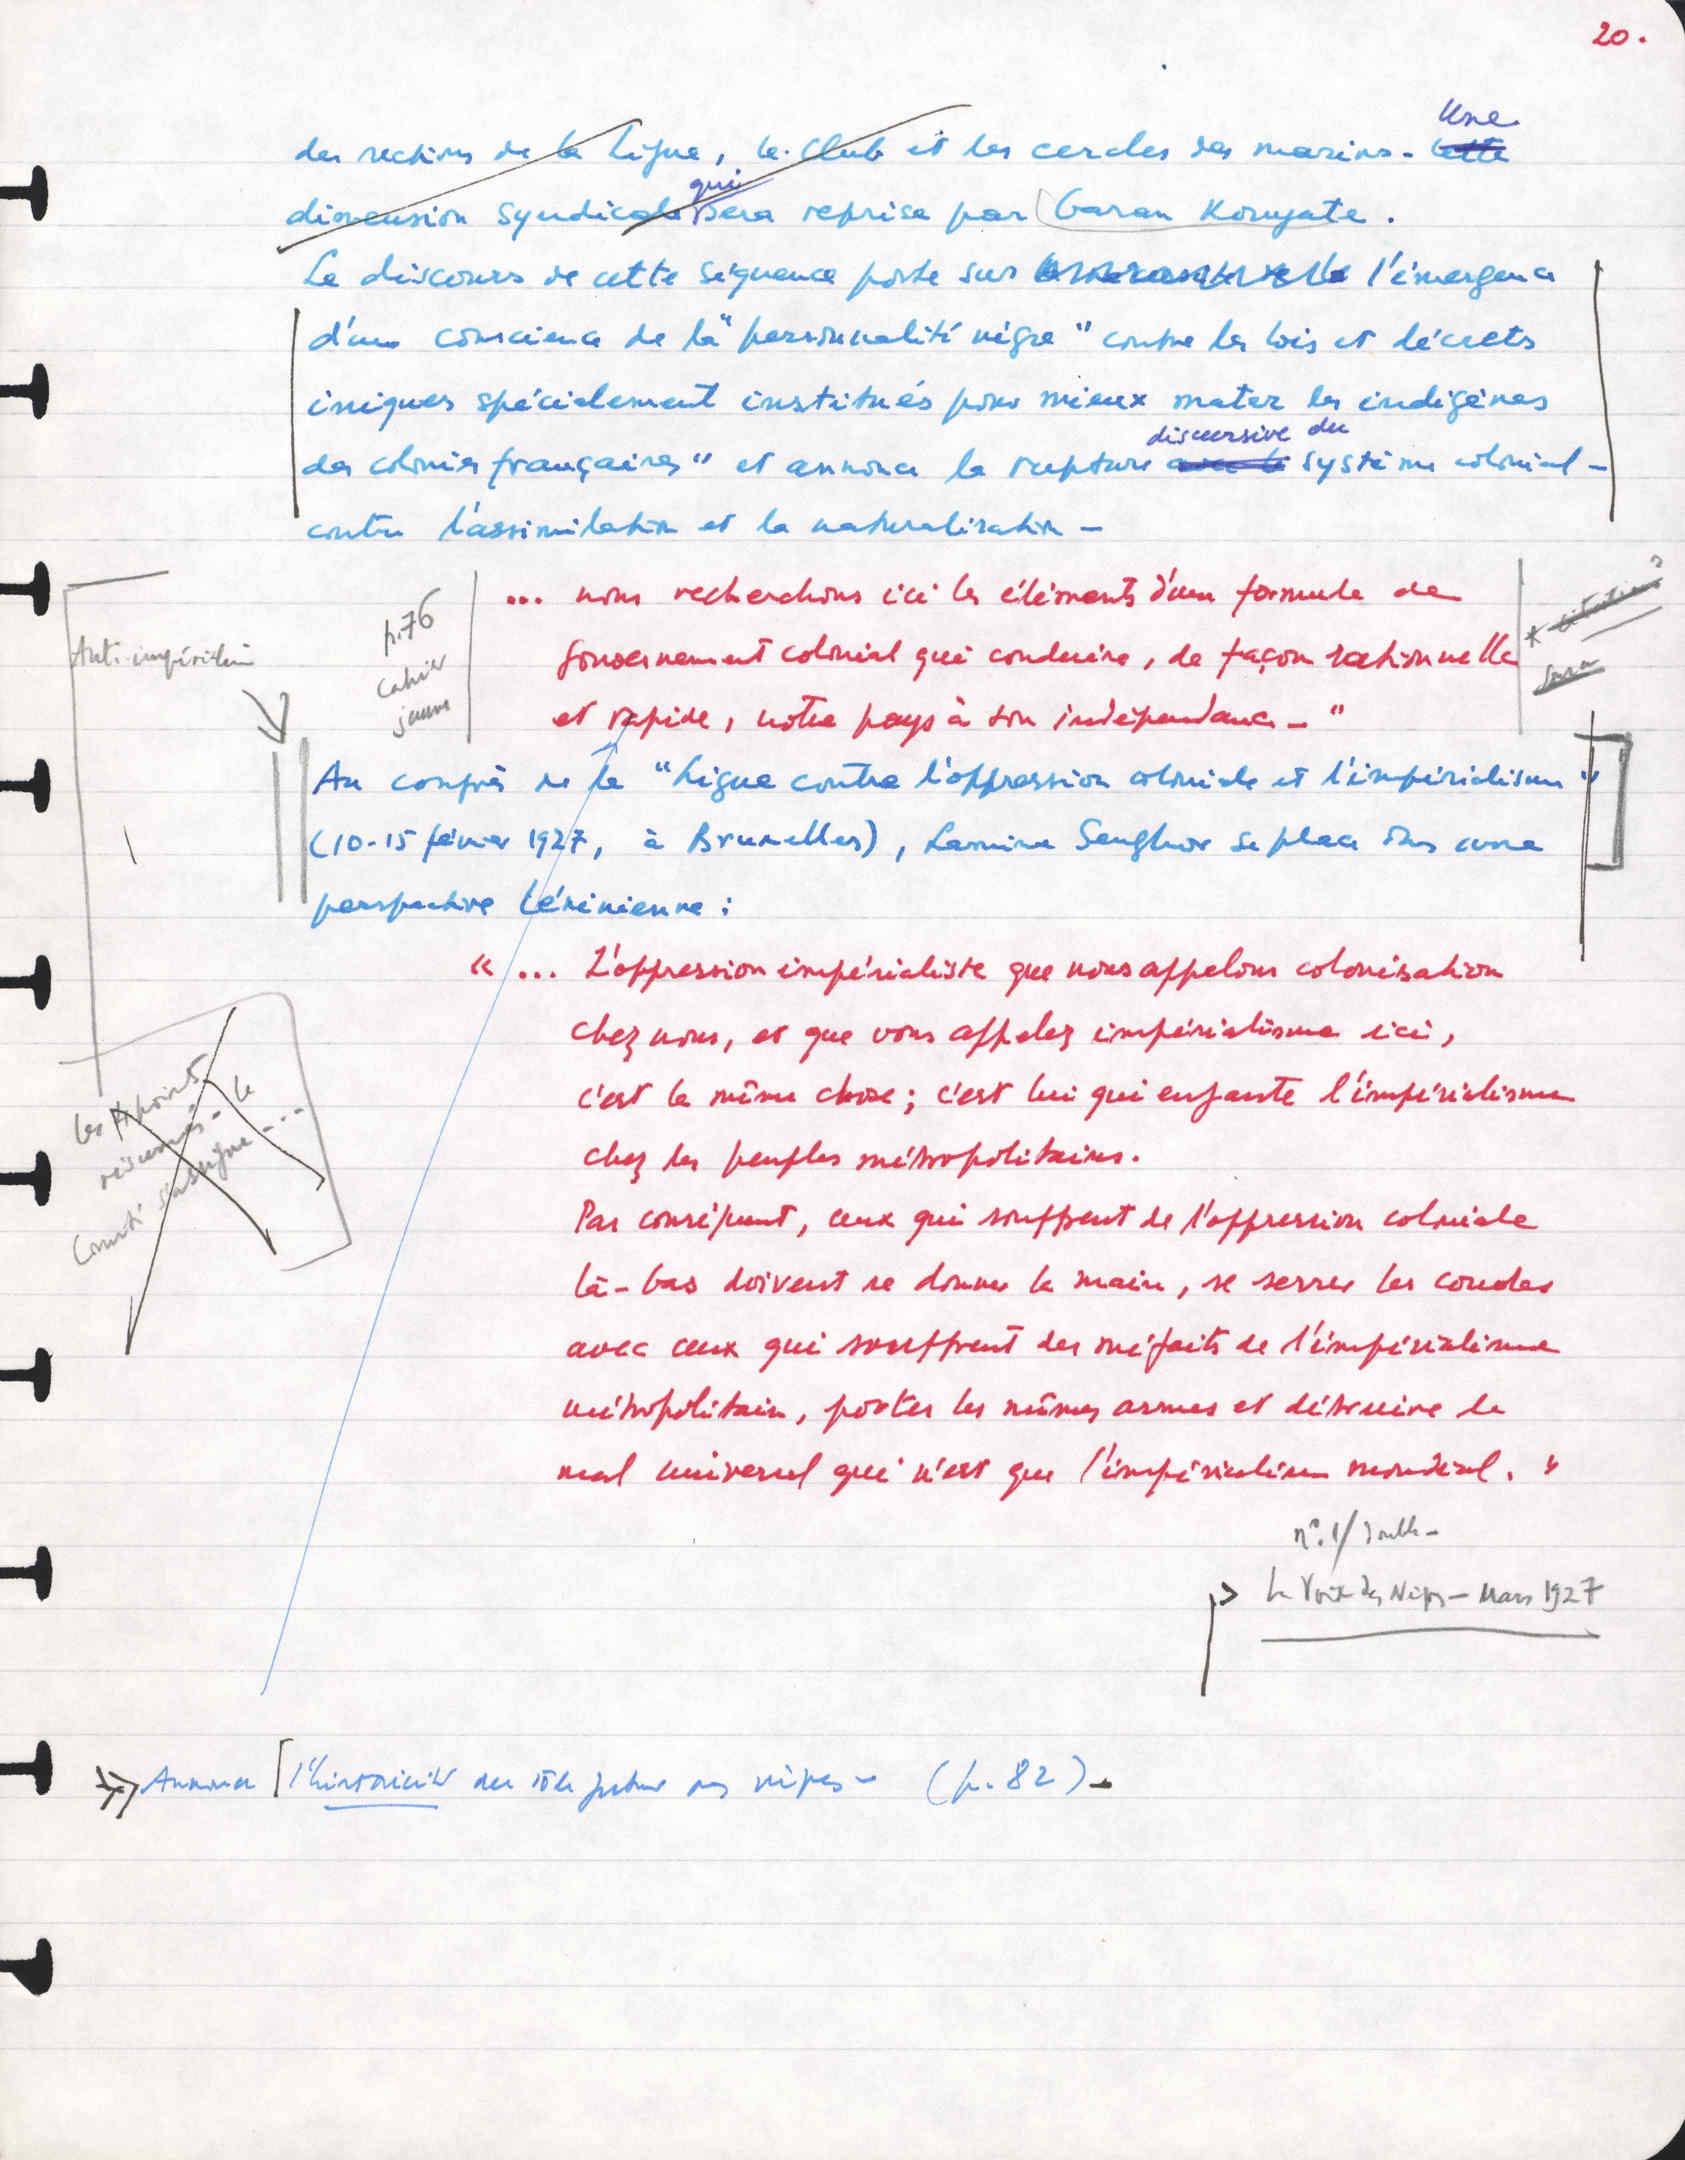 20.
Une
des sections de la Ligue, le Club et les cercles des marins - Cette
qui
dimension syndicale sera reprise par Garan Kouyate.
Le discours de cette séquence porte sur l'émergence
d'une conscience de la "personnalité nègre" contre les lois et décrets
iniques spécialement institués pour mieux mater les indigènes
des colonies françaises" et annonce la rupture
discursive du
système colonial -
contre l'assimilation et la naturalisation -
... nous recherchons ici les éléments d'une formule de
gouvernement colonial qui conduira, de façon rationnelle
et rapide, notre pays à son indépendance - "
p. 76
cahier
jaune
Anti-impérialisme
* citations ?
Au congrès de la "Ligue contre l'oppression coloniale et l'impérialisme"
(10-15 février 1927, à Bruxelles), Lamine Senghor se place dans une
perspective léninienne :
« ... L'oppression impérialiste que nous appelons colonisation
chez nous, et que vous appelez impérialisme ici,
c'est la même chose ; c'est lui qui enfante l'impérialisme
chez les peuples métropolitains.
Par conséquent, ceux qui souffrent de l'oppression coloniale
là-bas doivent se donner la main, se serrer les coudes
avec ceux qui souffrent des méfaits de l'impérialisme
métropolitain, porter les mêmes armes et détruire le
mal universel qui n'est que l'impérialisme mondial. »
les 4 points
résumés - le
Comité s'assigne - ...
n°. 1/
La Voix des Nègres - Mars 1927
Annoncer l'historicité du rôle futur des nègres - (p. 82) -